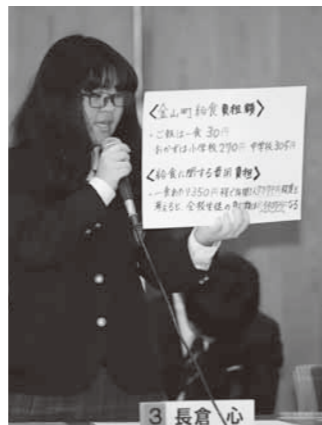 〈金山町給食負担額〉
・ご飯は一食30円
おかずは小学校270円 中学校305円
〈給食に関する費用負担〉
・一食あたり350円
考えると、全校生徒の
3 長倉 心